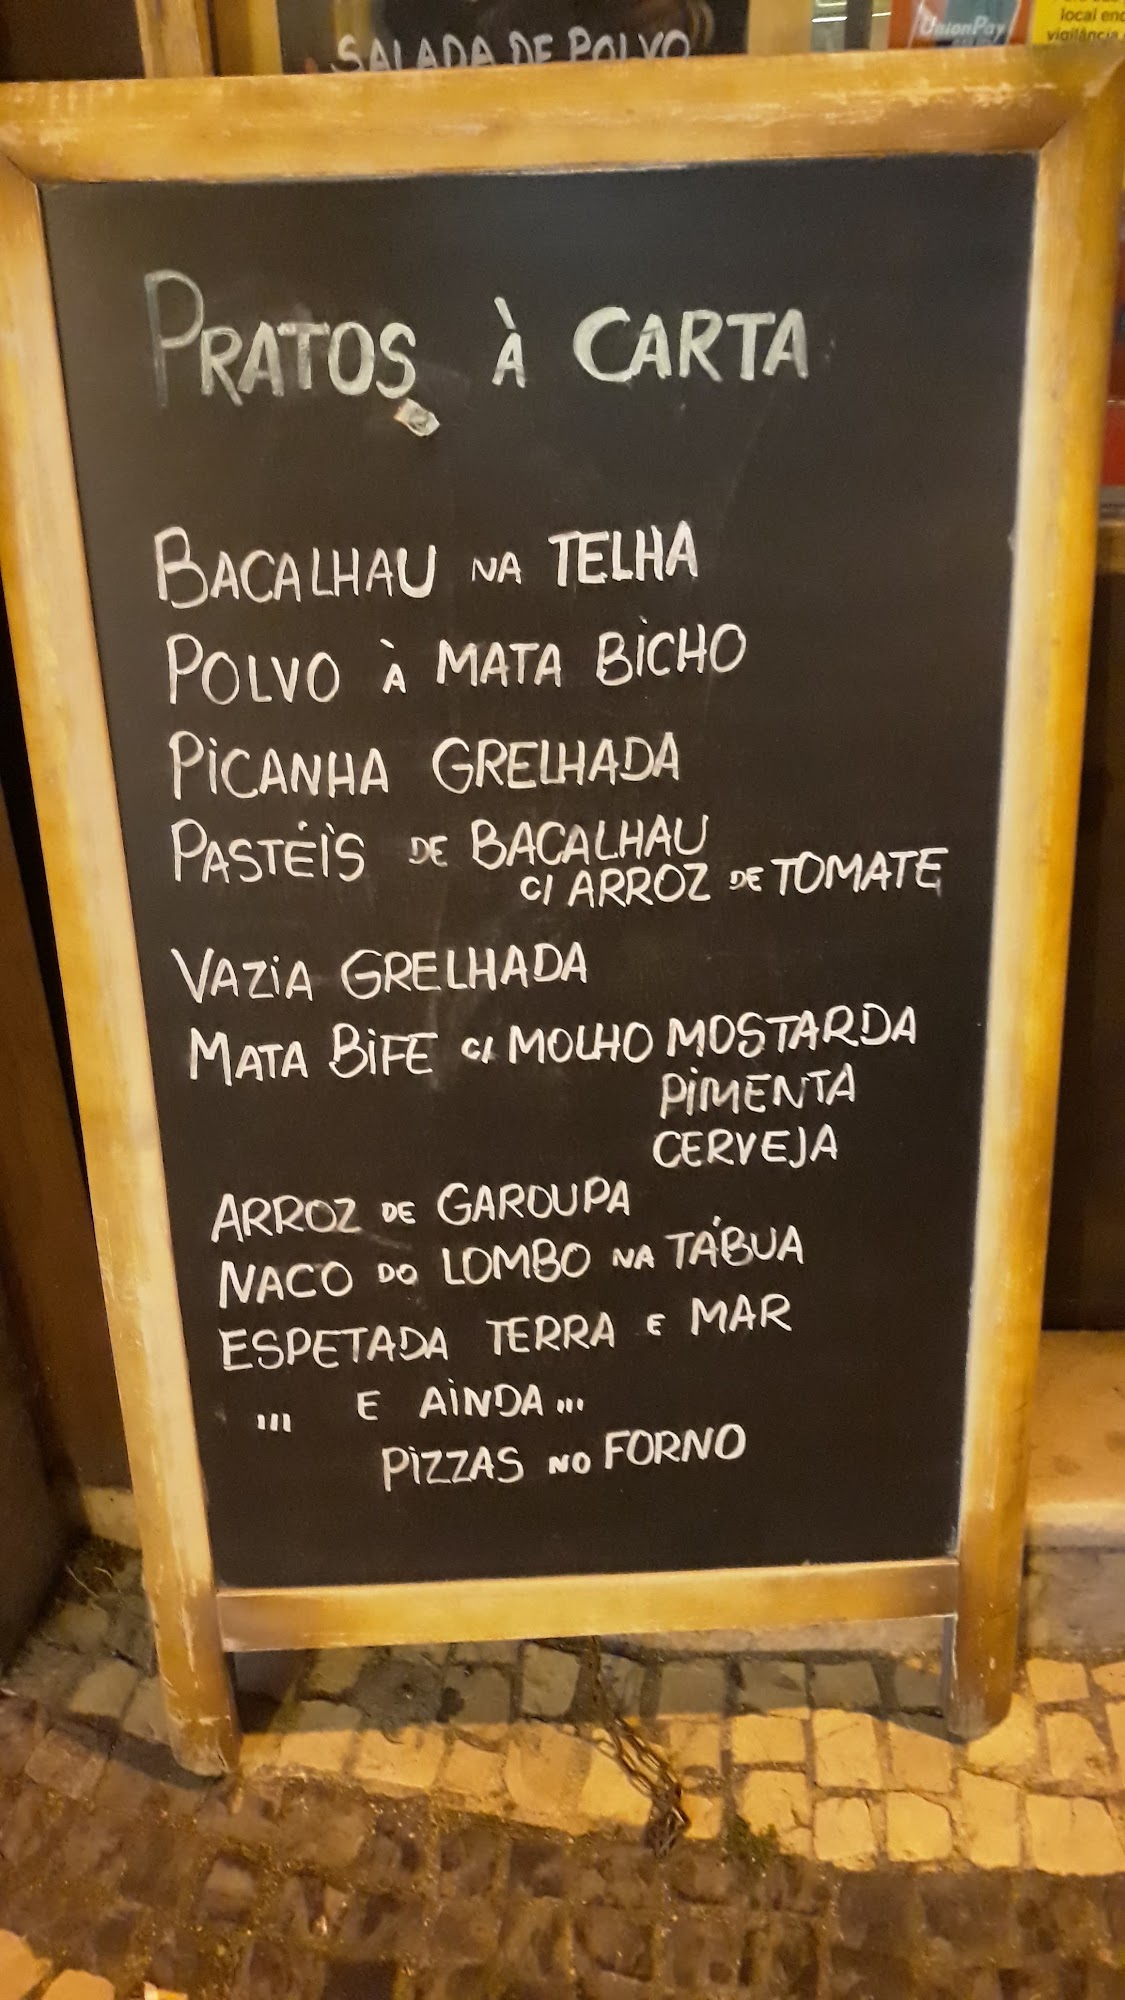 SALADA DE POLVO
UnionPay
local
vigilância
PRATOS À CARTA
BACALHAU NA TELHA
POLVO À MATA BICHO
PICANHA GRELHADA
PASTÉIS DE BACALHAU
C/ ARROZ DE TOMATE
VAZIA GRELHADA
MATA BIFE C/ MOLHO MOSTARDA
PIMENTA
CERVEJA
ARROZ DE GAROUPA
NACO DO LOMBO NA TÁBUA
ESPETADA TERRA E MAR
... E AINDA...
PIZZAS NO FORNO